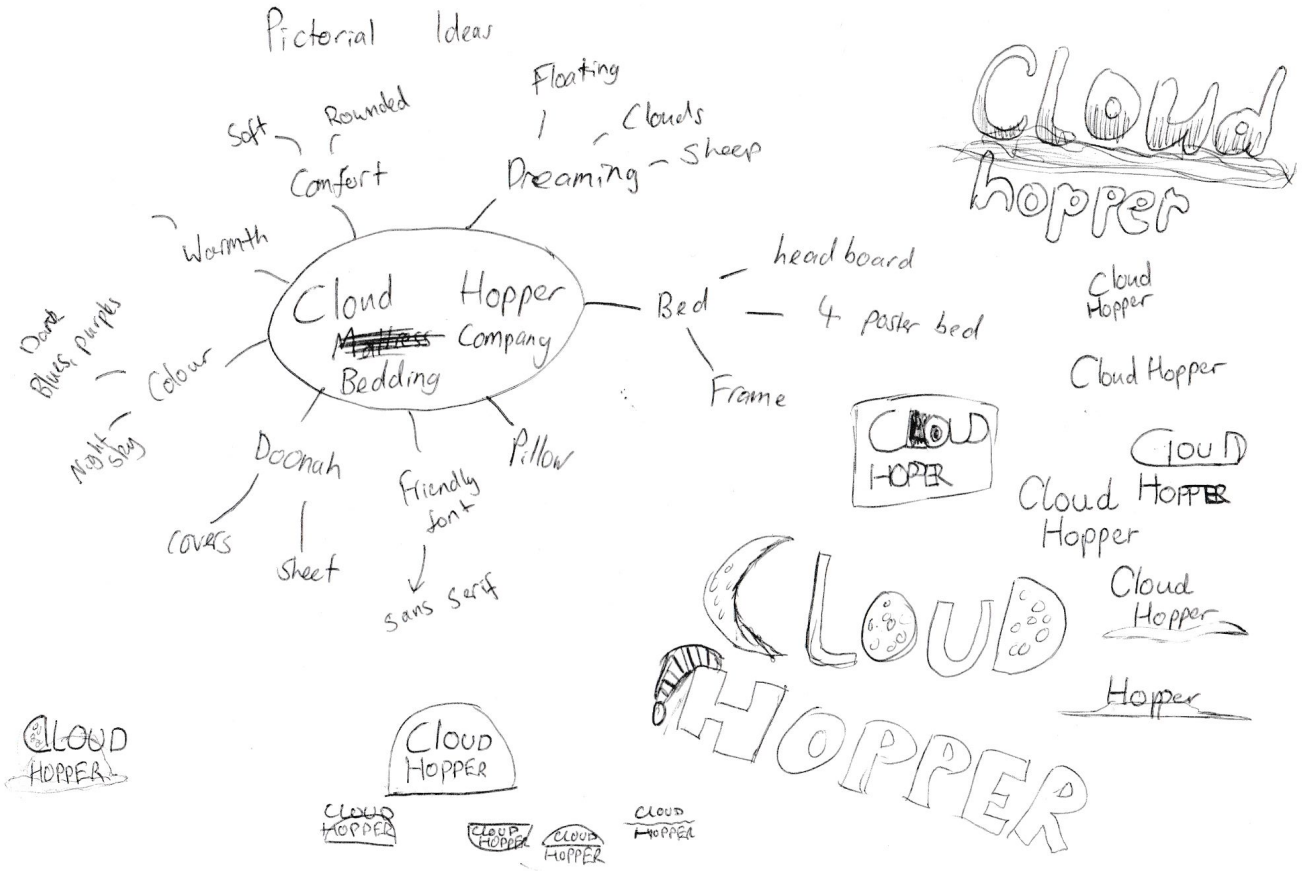 Pictorial Ideas
Floating
Soft
Rounded
Clouds
Sheep
Comfort
Dreaming
Warmth
Cloud Hopper
Mattress Company
Bedding
Bed
head board
4 poster bed
Frame
Dark
Blues, purples
Colour
Night
Sky
Doonah
covers
sheet
Friendly
font
sans serif
Pillow
Cloud
hopper
Cloud
Hopper
Cloud Hopper
CLOUD
HOPPER
CLOUD
HOPPER
Cloud
Hopper
Cloud
Hopper
Hopper
CLOUD
HOPPER
CLOUD
HOPPER
CLOUD
HOPPER
CLOUD
HOPPER
CLOUD
HOPPER
CLOUD
HOPPER
CLOUD
HOPPER